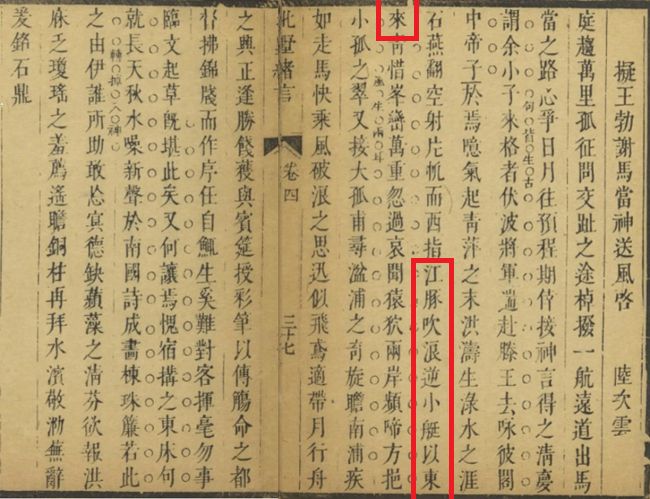 擬王勃謝馬當神送風啓　陸次雲
庭趨萬里孤征問交趾之途棹撥一航遠道出馬
當之路心爭日月往預程期倖接神言得之清
謂余小子來格者伏波將軍遄赴滕王去咏彼閣
中帝子於焉噫氣起青萍之末洪濤生淥水之涯
石燕翻空射片帆而西指江豚吹浪逆小艇以東
來方惜峯巒萬重忽過哀聞猿狖兩岸頻啼方挹
小孤之翠又接大孤甫尋湓浦之奇旋瞻南浦疾
風生兩耳
如走馬快乘風破浪之思迅似飛鳶適帶月行舟
北墅緒言　卷四　三十七
之興正逢勝餞獲與賓筵授彩筆以傳觴命之都
督拂錦牋而作序任自鯫生奚難對客揮毫勿事
臨文起草旣堪此矣又何讓焉愧宿搆之東床句
就長天秋水噪新聲於南國詩成畫棟珠簾若此
入神
之由伊誰所助敢忘冥德缺蘋藻之清芬欲報洪
庥乏瓊瑤之羞薦遙瞻銅柱再拜水濱敬泐無辭
爰銘石鼎